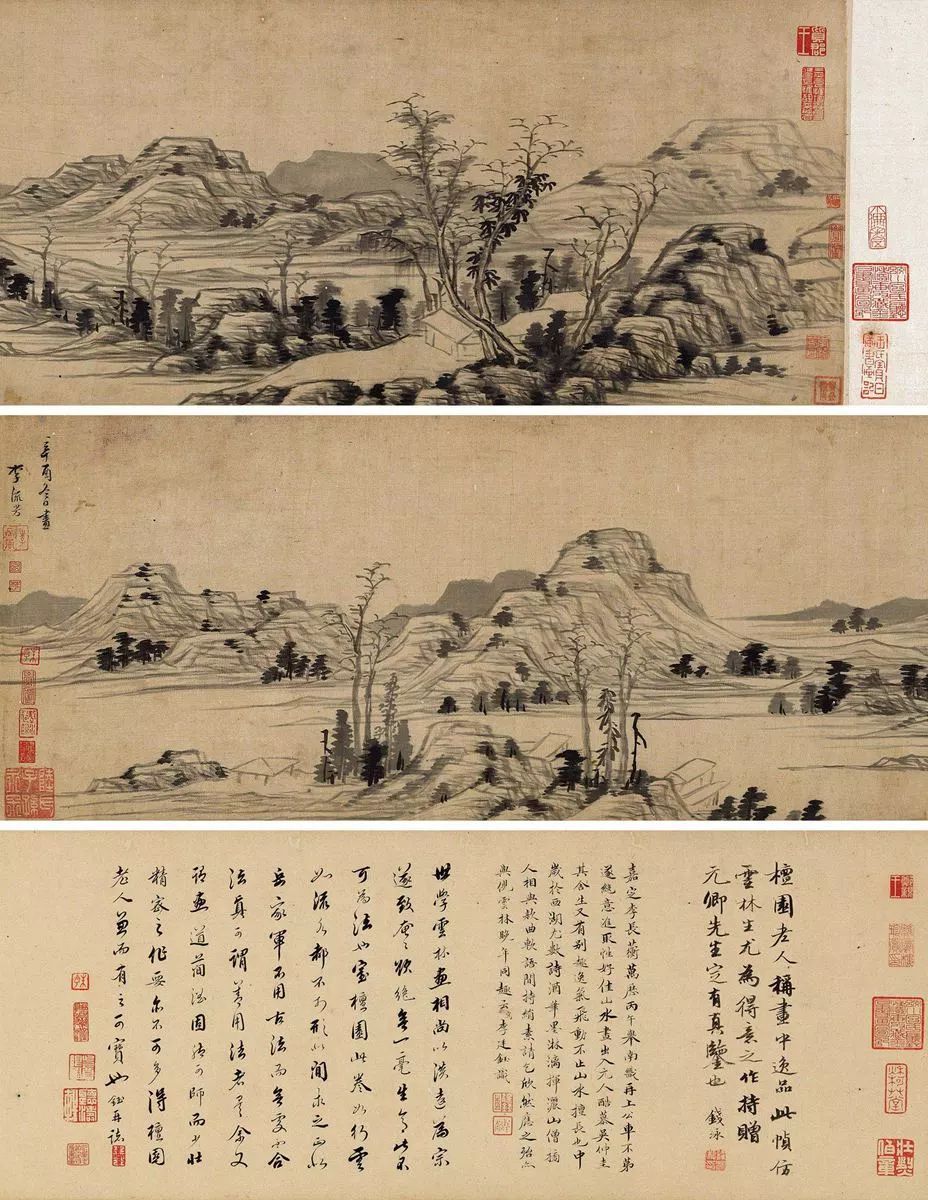 辛酉冬日畫
李流芳
檀園老人稱畫中逸品此幀仿
雲林生尤為得意之作持贈
元卿先生定有真鑒也 錢泳
嘉定李長蘅萬歷丙午舉南畿再上公車不第
遂絕意進取性好佳山水畫出入元人酷慕吳仲圭
其合生又有別趣逸氣飛動不止山水擅長也中
歲於西湖尤數詩酒華墨淋漓揮灑山僧榜
人相與款曲軟語間持絹素請乞欣然應之殆亦
與倪雲林晚年同趣云 李廷鈺識
世學雲林畫相尚以淡遠為宗
遂致奄奄欲絕無一毫生氣此不
可為法也 檀園此卷如行雲
如流水都不於形似間求之正如
岳家軍不用古法而無處不合
法真可謂善用法者矣余又
畫道簡澹固 可師而少壯
精密之作要亦不可多得檀園
老人兼而有之可寶也 鈺再誌